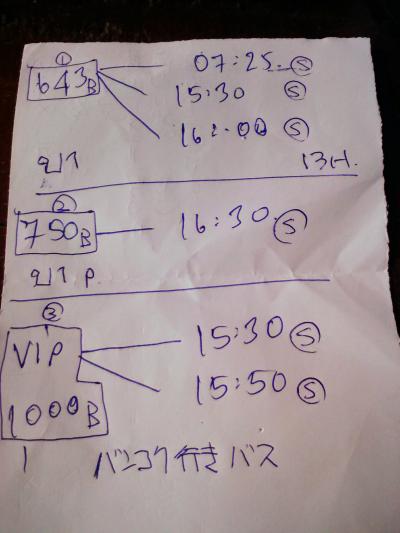 ①
643B 07:25 Ⓢ
15:30 Ⓢ
16:00 Ⓢ
ป1 13H.
②
750B 16:30 Ⓢ
ป1 P.
③
VIP 15:30 Ⓢ
15:50 Ⓢ
1000B
バンコク行きバス